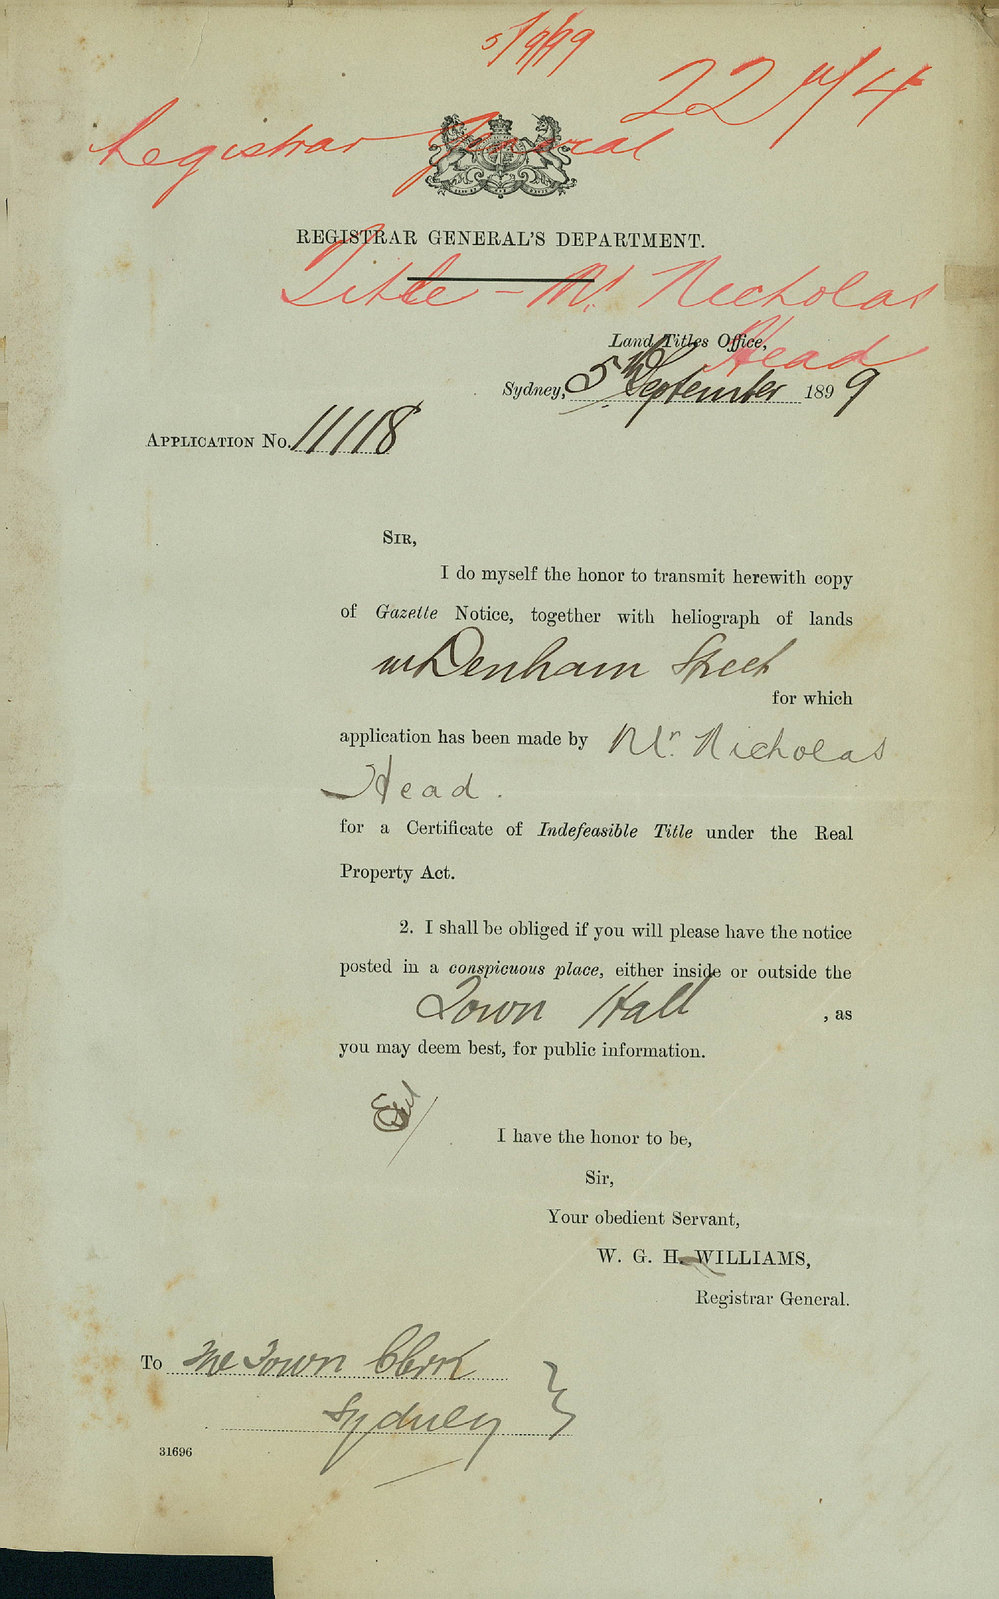 5/9/99
22
Registrar General
REGISTRAR GENERAL'S DEPARTMENT.
Title - Mr Nicholas
Head
Land Titles Office,
Sydney, 5th September 1899
APPLICATION No. 11118
SIR,
I do myself the honor to transmit herewith copy
of Gazette Notice, together with heliograph of lands
in Denham Street
for which
application has been made by Mr. Nicholas
Head.
for a Certificate of Indefeasible Title under the Real
Property Act.
2. I shall be obliged if you will please have the notice
posted in a conspicuous place, either inside or outside the
Town Hall , as
you may deem best, for public information.
I have the honor to be,
Sir,
Your obedient Servant,
W. G. H. WILLIAMS,
Registrar General.
To The Town Clerk
Sydney
31696